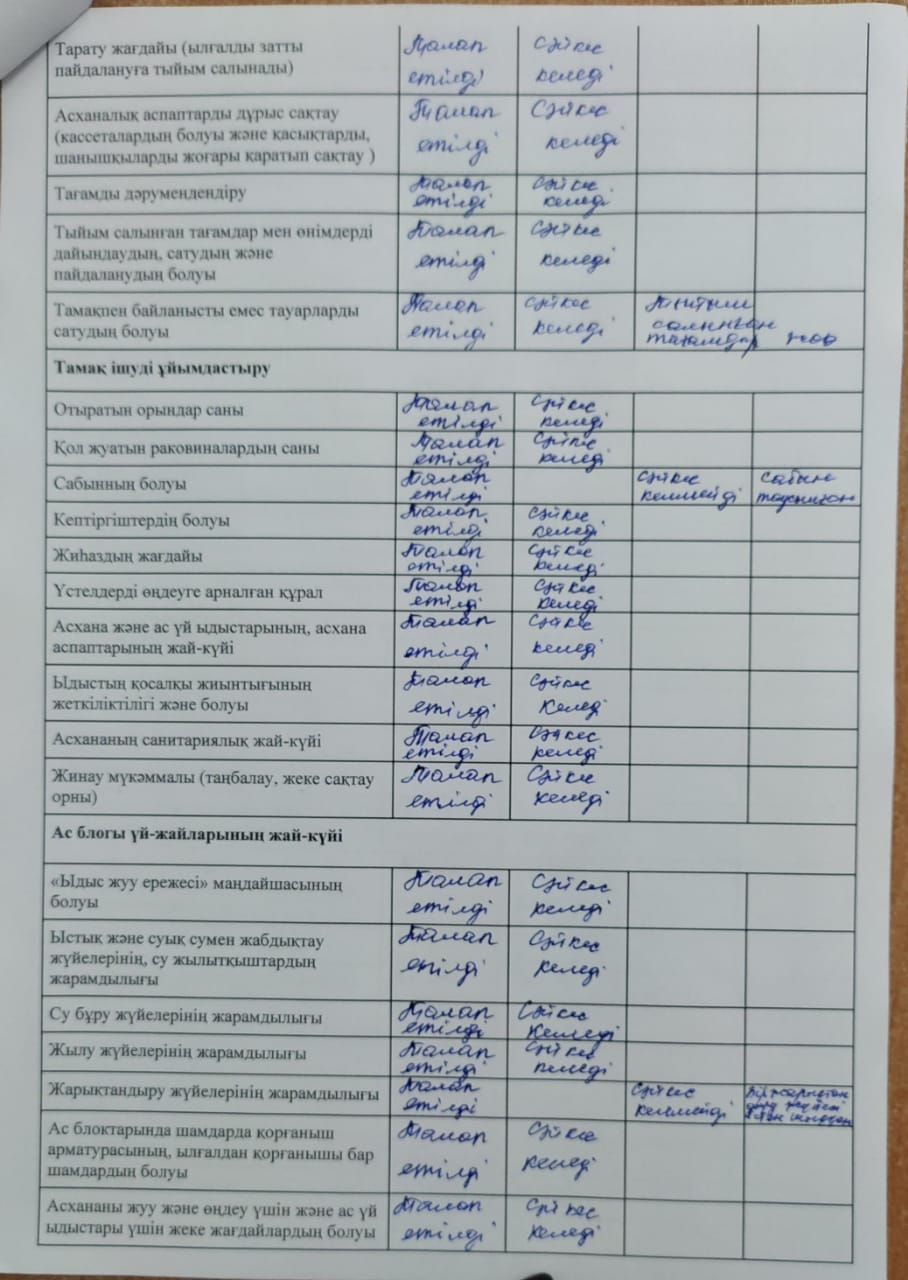 Тарату жағдайы (ылғалды затты Талап Сәйкес
пайдалануға тыйым салынады) етілді келеді
Асханалық аспаптарды дұрыс сақтау Талап Сәйкес
(кассеталардың болуы және қасықтарды, етілді келеді
шанышқыларды жоғары қаратып сақтау )
Тағамды дәрумендендіру Талап Сәйкес
етілді келеді
Тыйым салынған тағамдар мен өнімдерді Талап Сәйкес
дайындаудың, сатудың және етілді келеді
пайдаланудың болуы
Тамақпен байланысты емес тауарларды Талап Сәйкес
сатудың болуы етілді келеді салынған
тағамдар жоқ
Тамақ ішуді ұйымдастыру
Отыратын орындар саны Талап Сәйкес
етілді келеді
Қол жуатын раковиналардың саны Талап Сәйкес
етілді келеді
Сабынның болуы Талап Сәйкес Сабын
етілді келмейді таусылған
Кептіргіштердің болуы Талап Сәйкес
етілді келеді
Жиһаздың жағдайы Талап Сәйкес
етілді келеді
Үстелдерді өңдеуге арналған құрал Талап Сәйкес
етілді келеді
Асхана және ас үй ыдыстарының, асхана Талап Сәйкес
аспаптарының жай-күйі етілді келеді
Ыдыстың қосалқы жиынтығының Талап Сәйкес
жеткіліктілігі және болуы етілді Келеді
Асхананың санитариялық жай-күйі Талап Сәйкес
етілді келеді
Жинау мүкәммалы (таңбалау, жеке сақтау Талап Сәйкес
орны) етілді келеді
Ас блогы үй-жайларының жай-күйі
«Ыдыс жуу ережесі» маңдайшасының Талап Сәйкес
болуы етілді келеді
Ыстық және суық сумен жабдықтау Талап Сәйкес
жүйелерінің, су жылытқыштардың етілді келеді
жарамдылығы
Су бұру жүйелерінің жарамдылығы Талап Сәйкес
етілді Келеді
Жылу жүйелерінің жарамдылығы Талап Сәйкес
етілді келеді
Жарықтандыру жүйелерінің жарамдылығы Талап Сәйкес
етілді келмейді
Ас блоктарында шамдарда қорғаныш Талап Сәйкес
арматурасының, ылғалдан қорғанышы бар етілді келеді
шамдардың болуы
Асхананы жуу және өңдеу үшін және ас үй Талап Сәйкес
ыдыстары үшін жеке жағдайлардың болуы етілді келеді